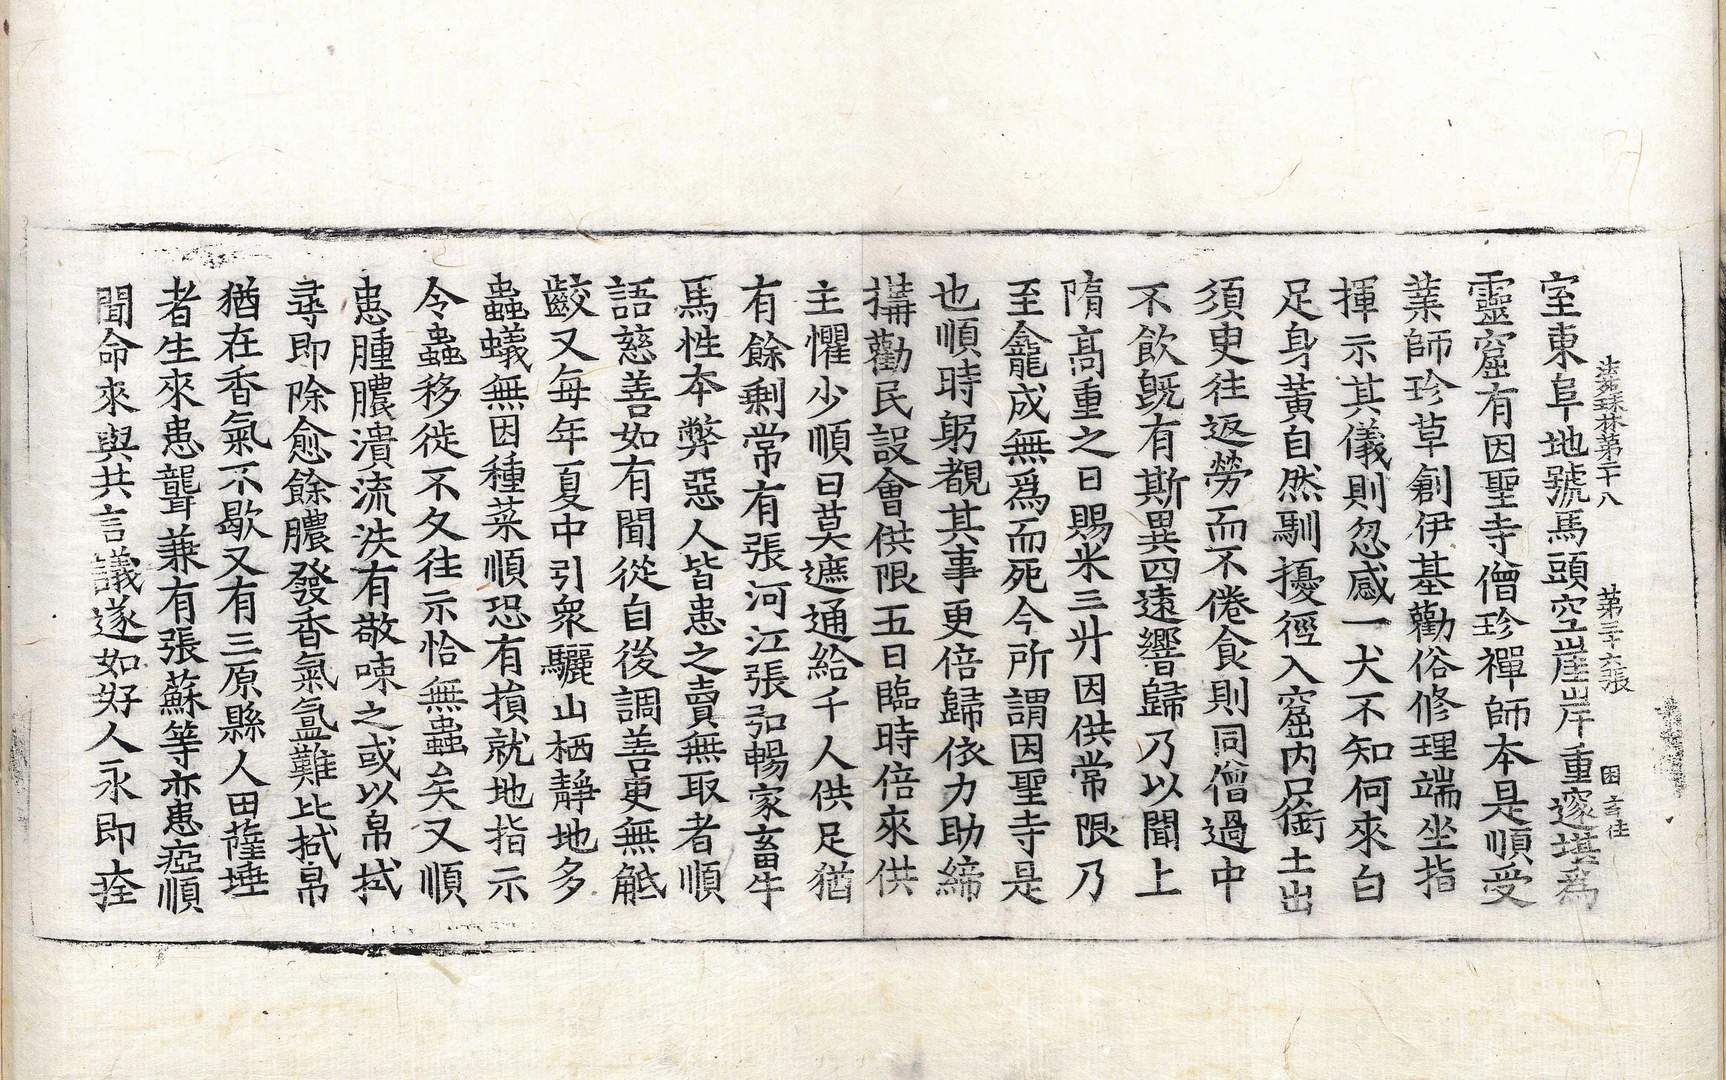 法苑珠林第二十八 第三十六張 困
室東阜地號馬頭空崖岸重邃堪為
靈窟有因聖寺僧珍禪師本是順受
業師珍草創伊基勸俗修理端坐指
揮示其儀則忽感一犬不知何來白
足身黃自然馴擾徑入窟內口銜土出
須臾往返勞而不倦食則同僧過中
不飲旣有斯異四遠響歸乃以聞上
隋高重之日賜米三升因供常限乃
至龕成無爲而死今所謂因聖寺是
也順時躬覩其事更倍歸依力助締
搆勸民設會供限五日臨時倍來供
主懼少順曰莫遮通給千人供足猶
有餘剩常有張河江張弘暢家畜牛
馬性本弊惡人皆患之賣無取者順
語慈善如有聞從自後調善更無觝
齩又每年夏中引衆驪山栖靜地多
蟲蟻無因種菜順恐有損就地指示
令蟲移徙不久往示恰無蟲矣又順
患腫膿潰流泆有敬㖒之或以帛拭
尋即除愈餘膿發香氣氳難比拭帛
猶在香氣不歇又有三原縣人田薩埵
者生來患聾兼有張蘇等亦患瘂順
聞命來與共言議遂如好人永即痊